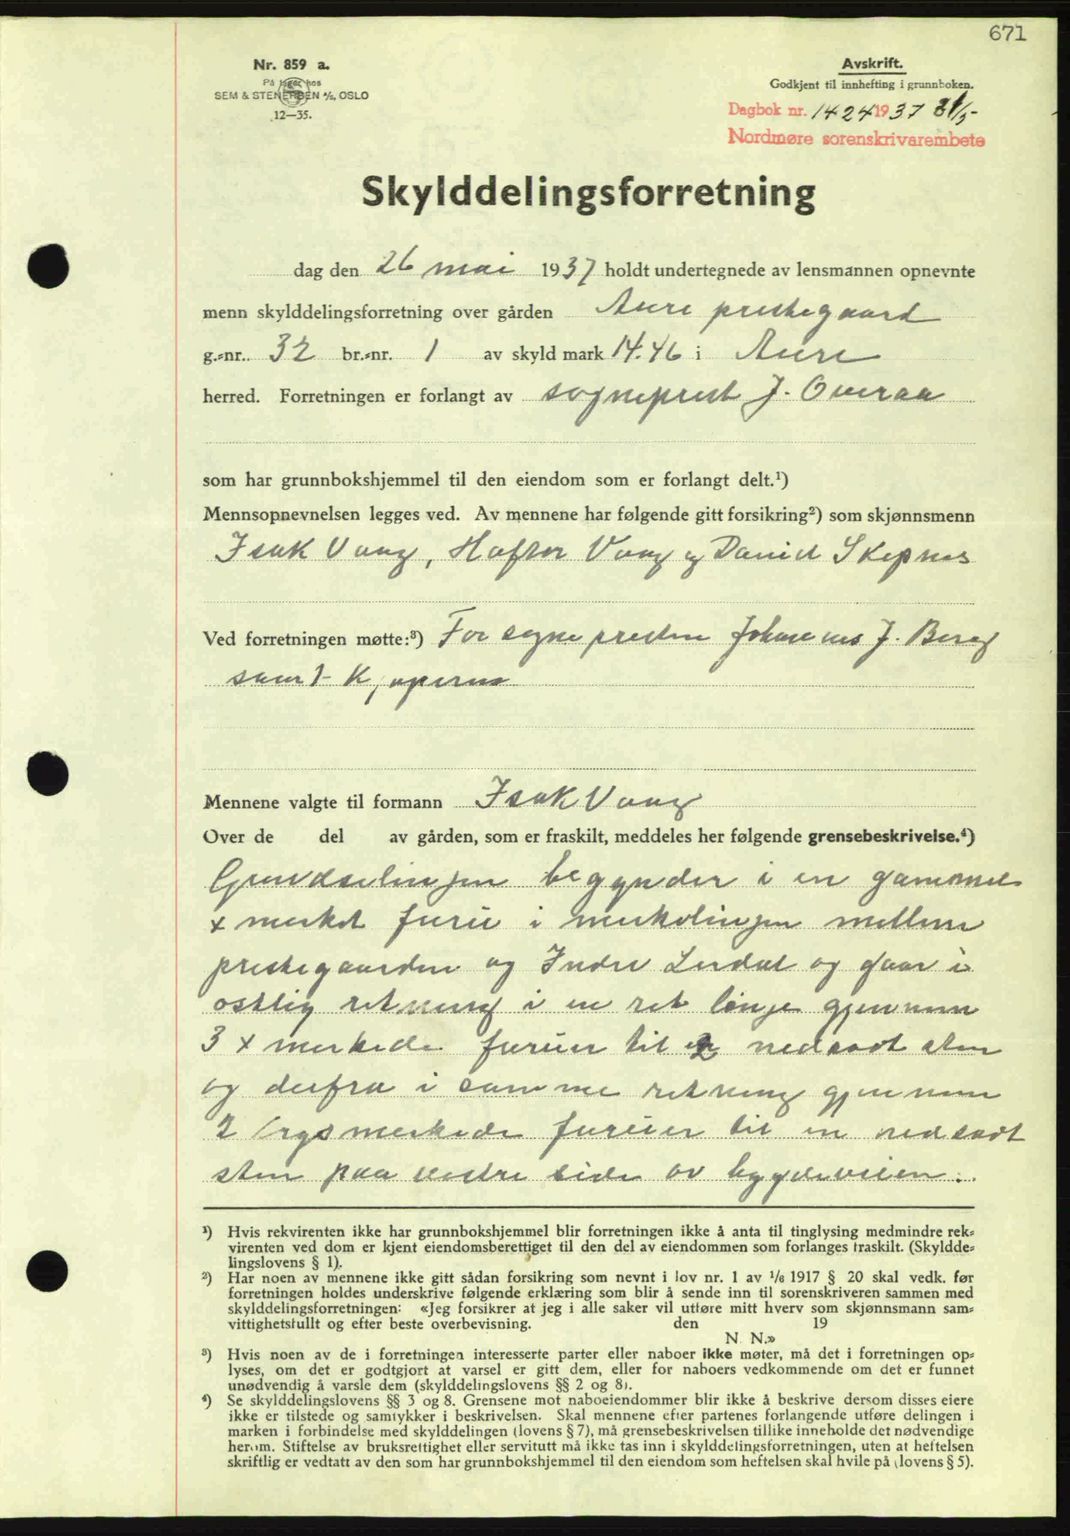 671
Nr. 859 a.
På lager hos
SEM & STENERSEN A/S, OSLO
12—35.
Avskrift.
Godkjent til innhefting i grunnboken.
Dagbok nr. 1424 1937 31/5-
Nordmøre sorenskrivarembete
Skylddelingsforretning
dag den 26 mai 1937 holdt undertegnede av lensmannen opnevnte
menn skylddelingsforretning over gården Aure prestegaard
g.=nr. 32 br.=nr. 1 av skyld mark 14.46 i Aure
herred. Forretningen er forlangt av sogneprest J. Overaa
som har grunnbokshjemmel til den eiendom som er forlangt delt.¹)
Mennsopnevnelsen legges ved. Av mennene har følgende gitt forsikring²) som skjønnsmenn
Isak Vaag, Haftor Vaag og David Skepnes
Ved forretningen møtte:³) For sognepresten Johannes J. Berg
samt Kjøperne
Mennene valgte til formann Isak Vaag
Over de del av gården, som er fraskilt, meddeles her følgende grensebeskrivelse.⁴)
Grendselinjen begynder i en gammel
x merket furu i merkelinjen mellem
prestegaarden og Indre Lerdal og gaar i
østlig retning i en ret linje gjennem
3 x merkede furuer til 2 nedsadt sten
og derfra i samme retning gjennem
2 krysmerkede furuer til en nedsadt
sten paa vestre side av bygdeveien.
¹) Hvis rekvirenten ikke har grunnbokshjemmel blir forretningen ikke å anta til tinglysing medmindre rek=
virenten ved dom er kjent eiendomsberettiget til den del av eiendommen som forlanges fraskilt. (Skyldde=
lingslovens § 1).
²) Har noen av mennene ikke gitt sådan forsikring som nevnt i lov nr. 1 av ¹/₆ 1917 § 20 skal vedk. før
forretningen holdes underskrive følgende erklæring som blir å sende inn til sorenskriveren sammen med
skylddelingsforretningen: «Jeg forsikrer at jeg i alle saker vil utføre mitt hverv som skjønnsmann sam=
vittighetsfullt og efter beste overbevisning. den 19
N. N.»
³) Hvis noen av de i forretningen interesserte parter eller naboer ikke møter, må det i forretningen op=
lyses, om det er godtgjort at varsel er gitt dem, eller for naboers vedkommende om det er funnet
unødvendig å varsle dem (skylddelingslovens §§ 2 og 8).
⁴) Se skylddelingslovens §§ 3 og 8. Grensene mot naboeiendommer blir ikke å beskrive dersom disses eiere
ikke er tilstede og samtykker i beskrivelsen. Skal mennene efter partenes forlangende utføre delingen i
marken i forbindelse med skylddelingen (lovens § 7), må grensebeskrivelsen tillike inneholde det nødvendige
herom. Stiftelse av bruksrettighet eller servitutt må ikke tas inn i skylddelingsforretningen, uten at heftelsen
skriftlig er vedtatt av den som har grunnbokshjemmel til den eiendom som heftelsen skal hvile på (lovens § 5).